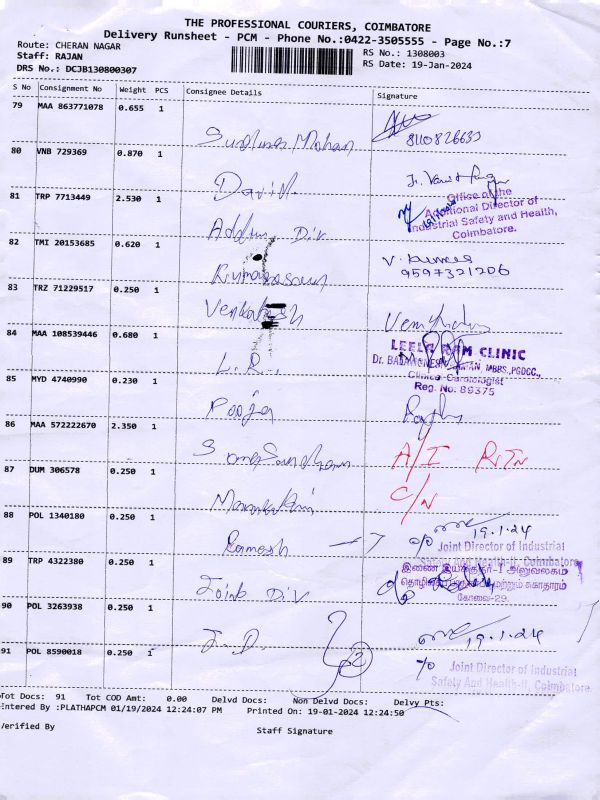 THE PROFESSIONAL COURIERS, COIMBATORE
Delivery Runsheet - PCM - Phone No.:0422-3505555 - Page No.:7
Route: CHERAN NAGAR
RS No.: 1308003
Staff: RAJAN
RS Date: 19-Jan-2024
DRS No.: DCJB130800307
S No Consignment No Weight PCS Consignee Details Signature
79 MAA 863771078 0.655 1
80 VNB 729369 0.870 1
David
81 TRP 7713449 2.530 1
Office of the
Additional Director of
Industrial Safety and Health,
Coimbatore.
82 TMI 20153685 0.620 1
V. Kumar
9597321206
83 TRZ 71229517 0.250 1
Venkatesh
84 MAA 108539446 0.680 1
L.R.
LEELA RAM CLINIC
MBBS, PGDCC.,
Clinical Cardiologist
Reg. No: 89375
85 MYD 4740990 0.230 1
Pooja
86 MAA 572222670 2.350 1
A/I
C/N
87 DUM 306578 0.250 1
88 POL 1340180 0.250 1
Ramesh
19.1.24
Joint Director of Industrial
Safety And Health-II, Coimbatore.
89 TRP 4322380 0.250 1
Joint Div
மற்றும் சுகாதாரம்
கோவை-29.
90 POL 3263938 0.250 1
J.D.
2
19.1.24
91 POL 8590018 0.250 1
Joint Director of Industrial
Safety And Health-II, Coimbatore.
Tot Docs: 91 Tot COD Amt: 0.00 Delvd Docs: Non Delvd Docs: Delvy Pts:
Entered By :PLATHAPCM 01/19/2024 12:24:07 PM Printed On: 19-01-2024 12:24:50
Verified By Staff Signature